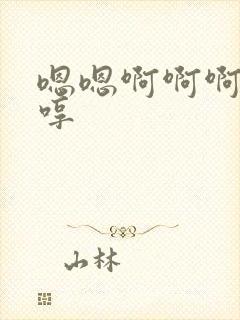 嗯嗯啊啊啊
哼
山林